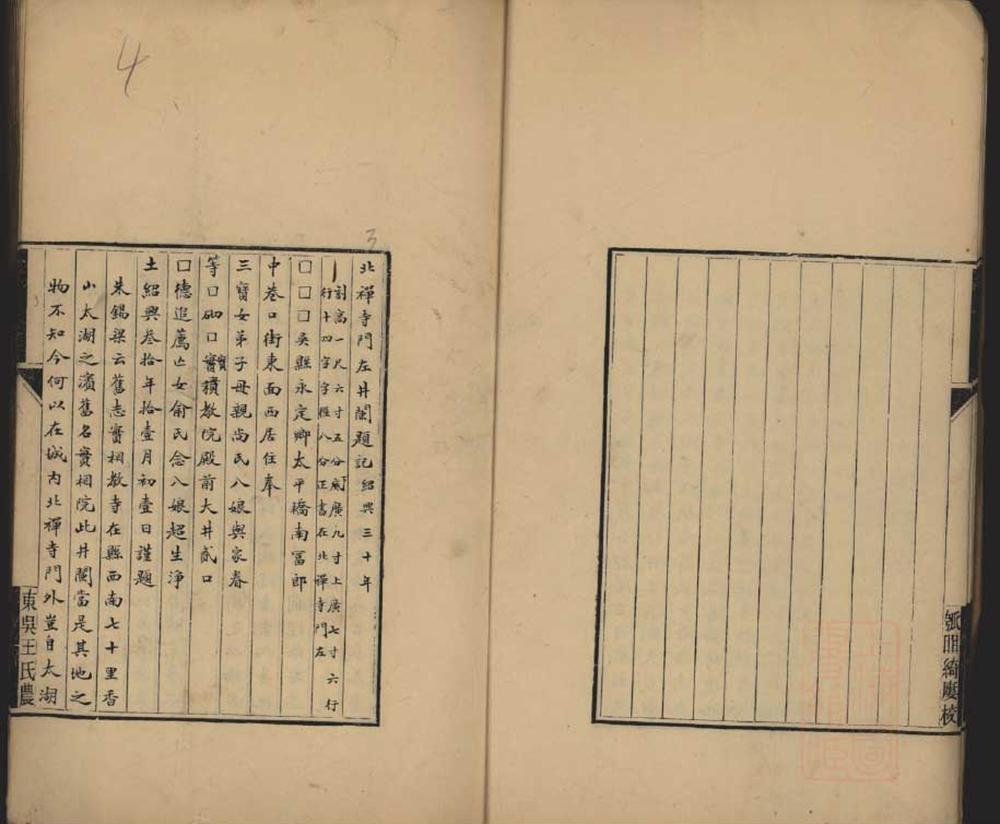 瓻䎱綺廔校
4
3
北禪寺門左井闌題記紹興三十年
刻高一尺六寸五分底廣九寸上廣七寸六行
行十四字字徑八分正書在北禪寺門左
囗囗囗吳縣永定鄉太平橋南冨郎
中巷口街東面西居住奉
三寳女弟子母親尚氏八娘與家眷
等口砌口寳積教院殿前大井貳口
口德追薦亾女俞氏念八娘超生淨
土紹興叁拾年拾壹月初壹日謹題
朱錫梁云舊志實相教寺在縣西南七十里香
山太湖之濱舊名實相院此井闌當是其地之
物不知今何以在城內北禪寺門外豈自太湖
東吳王氏農